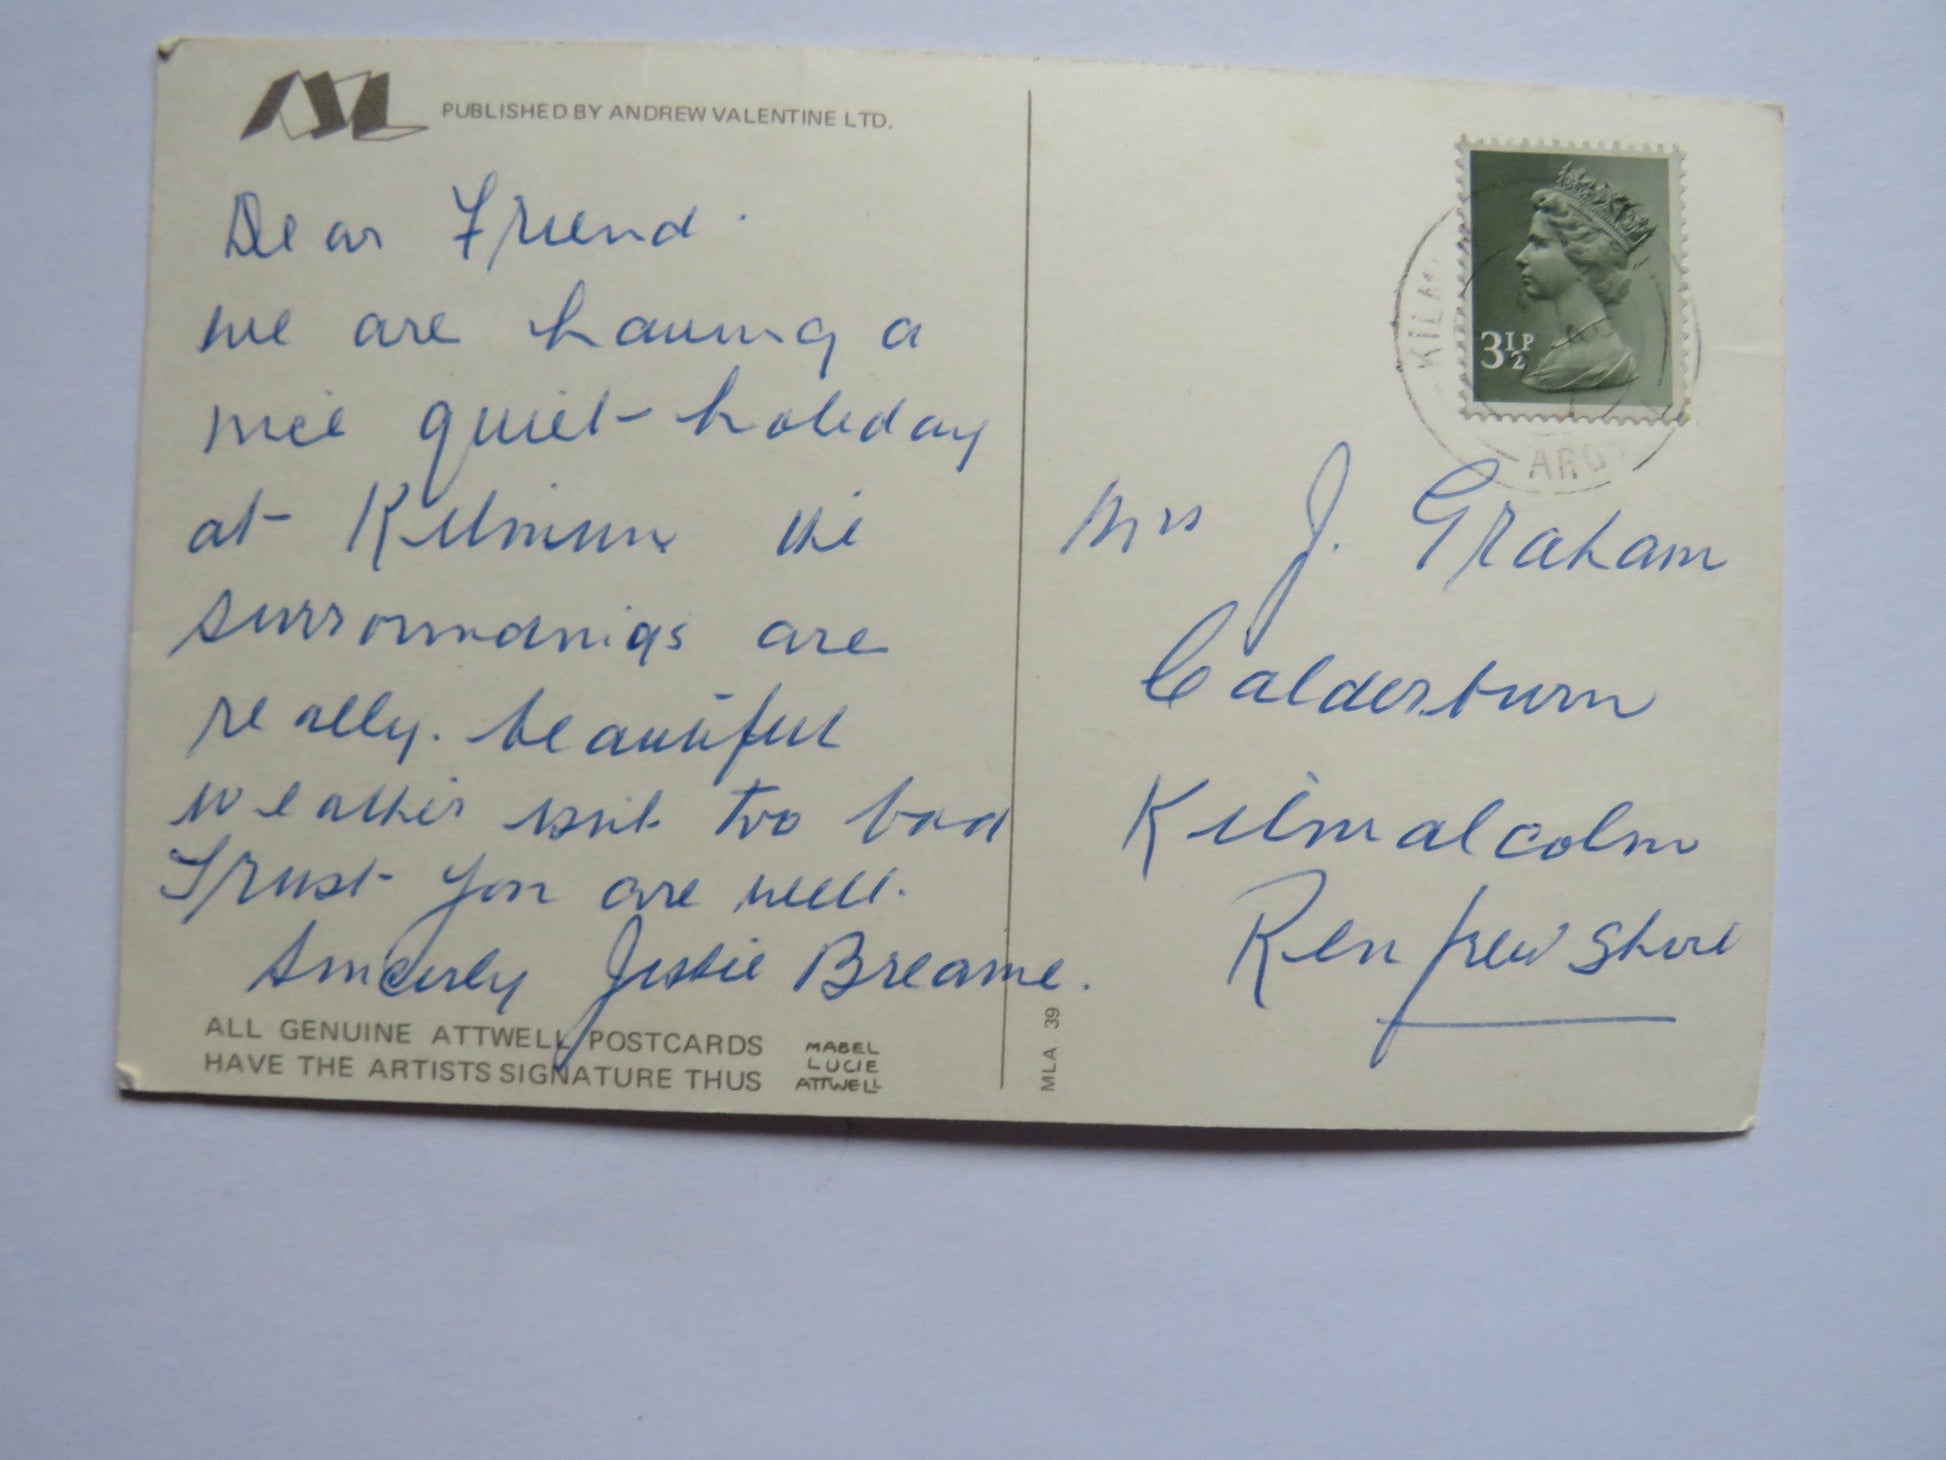 AVL
PUBLISHED BY ANDREW VALENTINE LTD.
Dear Friend.
we are having a
nice quiet holiday
at Kilmun the
surroundings are
really. beautiful
weather isnt too bad
Trust you are well.
Sincerely Jessie Breame.
ALL GENUINE ATTWELL POSTCARDS
HAVE THE ARTISTS SIGNATURE THUS
MABEL
LUCIE
ATTWELL
MLA 39
3½P
KILM
ARG
Mrs J. Graham
Calderburn
Kilmalcolm
Renfrewshire